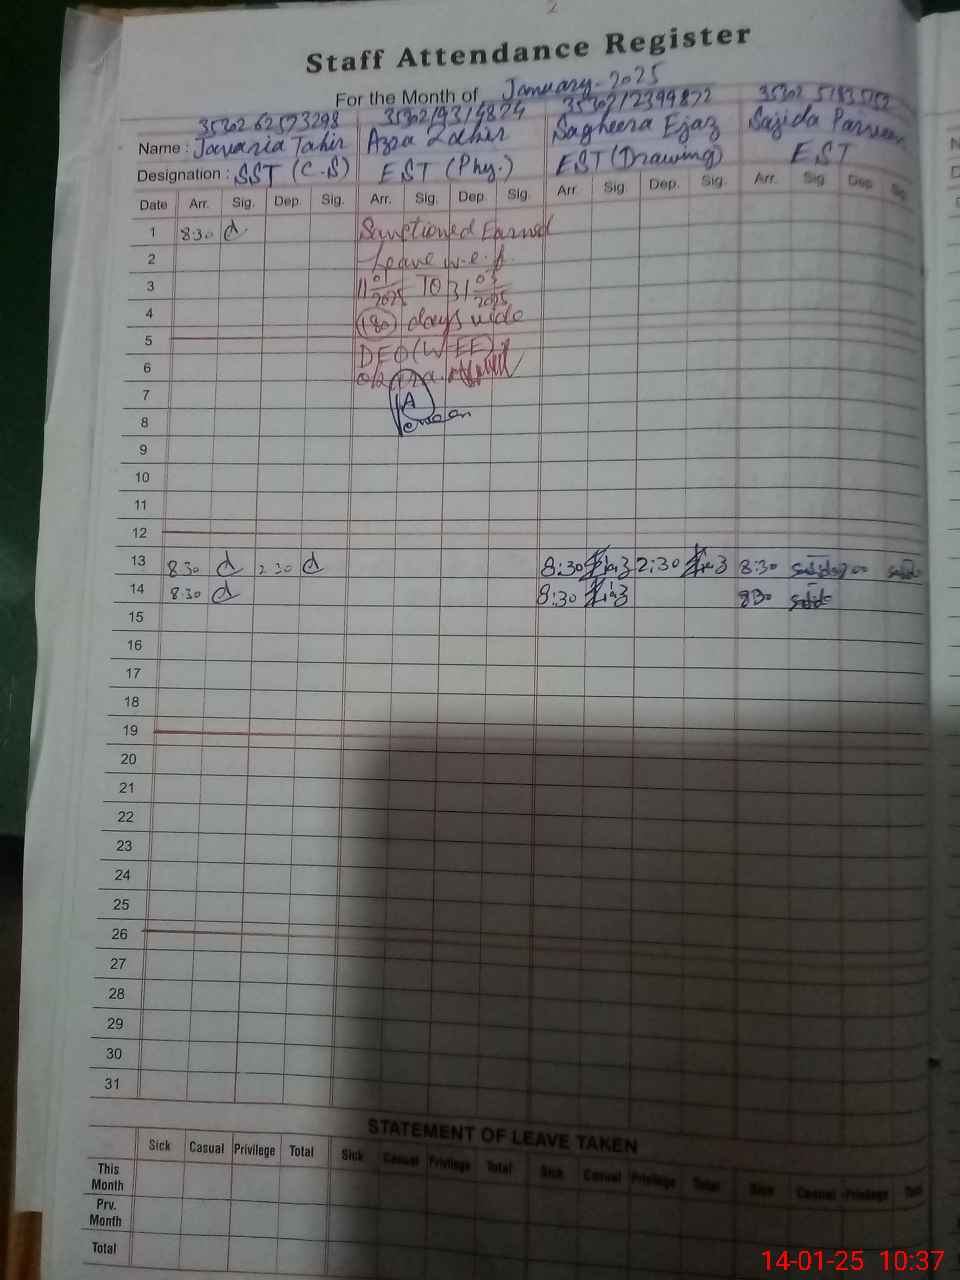 2
Staff Attendance Register
For the Month of January-2025
35302 62573298 35302 3530212399872 35302
Name : Javaria Tahir Azra Zahir Sagheera Ejaz Sajida Parveen
Designation : SST (C.S) EST (Phy.) EST (Drawing) EST
Date Arr. Sig. Dep. Sig. Arr. Sig. Dep. Sig. Arr. Sig. Dep. Sig. Arr. Sig. Dep. Sig.
1 8:30 Sanctioned Earned
2 Leave w.e.f.
3 TO
4 (180) days vide
5 DEO (W-EE)
6 Okara
7
8
9
10
11
12
13 8:30 2:30 8:30 2:30 8:30
14 8:30 8:30 8:30
15
16
17
18
19
20
21
22
23
24
25
26
27
28
29
30
31
STATEMENT OF LEAVE TAKEN
Sick Casual Privilege Total Sick Casual Privilege Total Sick Casual Privilege Total Sick Casual Privilege Total
This
Month
Prv.
Month
Total
14-01-25 10:37